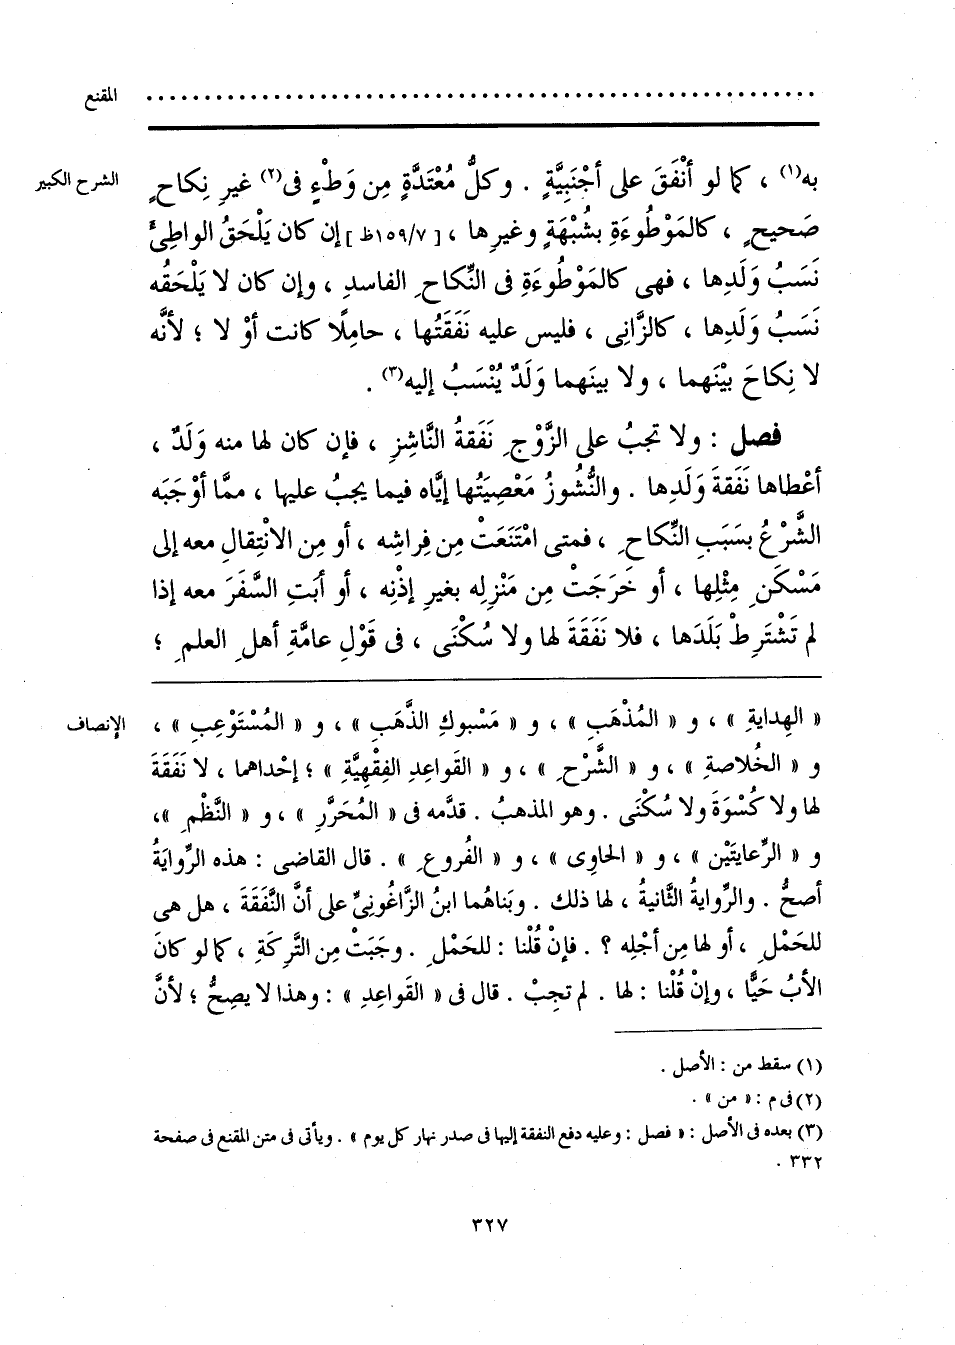 المقنع ................................................
الشرح الكبير
به(١) ، كما لو أنْفَقَ على أجْنَبِيَّةٍ . وكلُّ مُعْتَدَّةٍ مِن وَطْءٍ فى(٢) غيرِ نِكاحٍ
صَحيحٍ ، كالمَوْطُوءَةِ بشُبْهَةٍ وغيرِها ، [ ١٥٩/٧ظ ] إن كان يَلْحَقُ الواطِئَ
نَسَبُ وَلَدِها ، فهى كالمَوْطُوءَةِ فى النِّكاحِ الفاسدِ ، وإن كان لا يَلْحَقُه
نَسَبُ وَلَدِها ، كالزَّانِى ، فليس عليه نَفَقَتُها ، حامِلًا كانت أوْ لا ؛ لأنَّه
لا نِكاحَ بيْنَهما ، ولا بينَهما وَلَدٌ يُنْسَبُ إليه(٣) .
فصل : ولا تجبُ على الزَّوْجِ نَفَقةُ النَّاشِزِ ، فإن كان لها منه وَلَدٌ ،
أعْطاها نَفَقةَ وَلَدِها . والنُّشُوزُ مَعْصِيَتُها إيَّاه فيما يجبُ عليها ، ممَّا أوْجَبَه
الشَّرْعُ بسَبَبِ النِّكاحِ ، فمتى امْتَنَعَتْ مِن فِراشِه ، أو مِن الانْتِقالِ معه إلى
مَسْكَنِ مِثْلِها ، أو خَرَجَتْ مِن مَنْزِلِه بغيرِ إذْنِه ، أو أبَتِ السَّفَرَ معه إذا
لم تَشْتَرِطْ بَلَدَها ، فلا نَفَقَةَ لها ولا سُكْنَى ، فى قَوْلِ عامَّةِ أهلِ العلمِ ؛
الإنصاف
« الهِدايةِ » ، و « المُذْهَبِ » ، و « مَسْبوكِ الذَّهَبِ » ، و « المُسْتَوْعِبِ » ،
و « الخُلاصةِ » ، و « الشَّرْحِ » ، و « القَواعِدِ الفِقْهِيَّةِ » ؛ إحْداهما ، لا نَفَقَةَ
لها ولا كُسْوَةَ ولا سُكْنَى . وهو المذهبُ . قدَّمه فى « المُحَرَّرِ » ، و « النَّظْمِ »،
و « الرِّعايتَيْن » ، و « الحاوِى » ، و « الفُروعِ » . قال القاضى : هذه الرِّوايَةُ
أصحُّ . والرِّوايةُ الثَّانيةُ ، لها ذلك . وبَناهُما ابنُ الزَّاغُونِىِّ على أنَّ النَّفَقَةَ ، هل هى
للحَمْلِ ، أو لها مِن أجْلِه ؟ . فإنْ قُلْنا : للحَمْلِ . وجَبَتْ مِن التَّرِكَةِ ، كما لو كانَ
الأبُ حَيًّا ، وإنْ قُلْنا : لها . لم تجِبْ . قال فى « القَواعِدِ » : وهذا لا يصِحُّ ؛ لأنَّ
(١) سقط من : الأصل .
(٢) فى م : « من » .
(٣) بعده فى الأصل : « فصل : وعليه دفع النفقة إليها فى صدر نهار كل يوم » . ويأتى فى متن المقنع فى صفحة
٣٣٢ .
٣٢٧